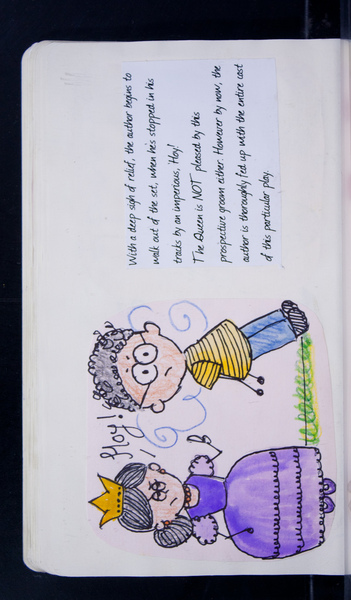 With a deep sigh of relief, the author begins to
walk out of the set, when he's stopped in his
tracks by an imperious, 'Hoy!'
The Queen is NOT pleased by this
prospective groom either. However by now, the
author is thoroughly fed up with the entire cast
of this particular play.
Hoy!